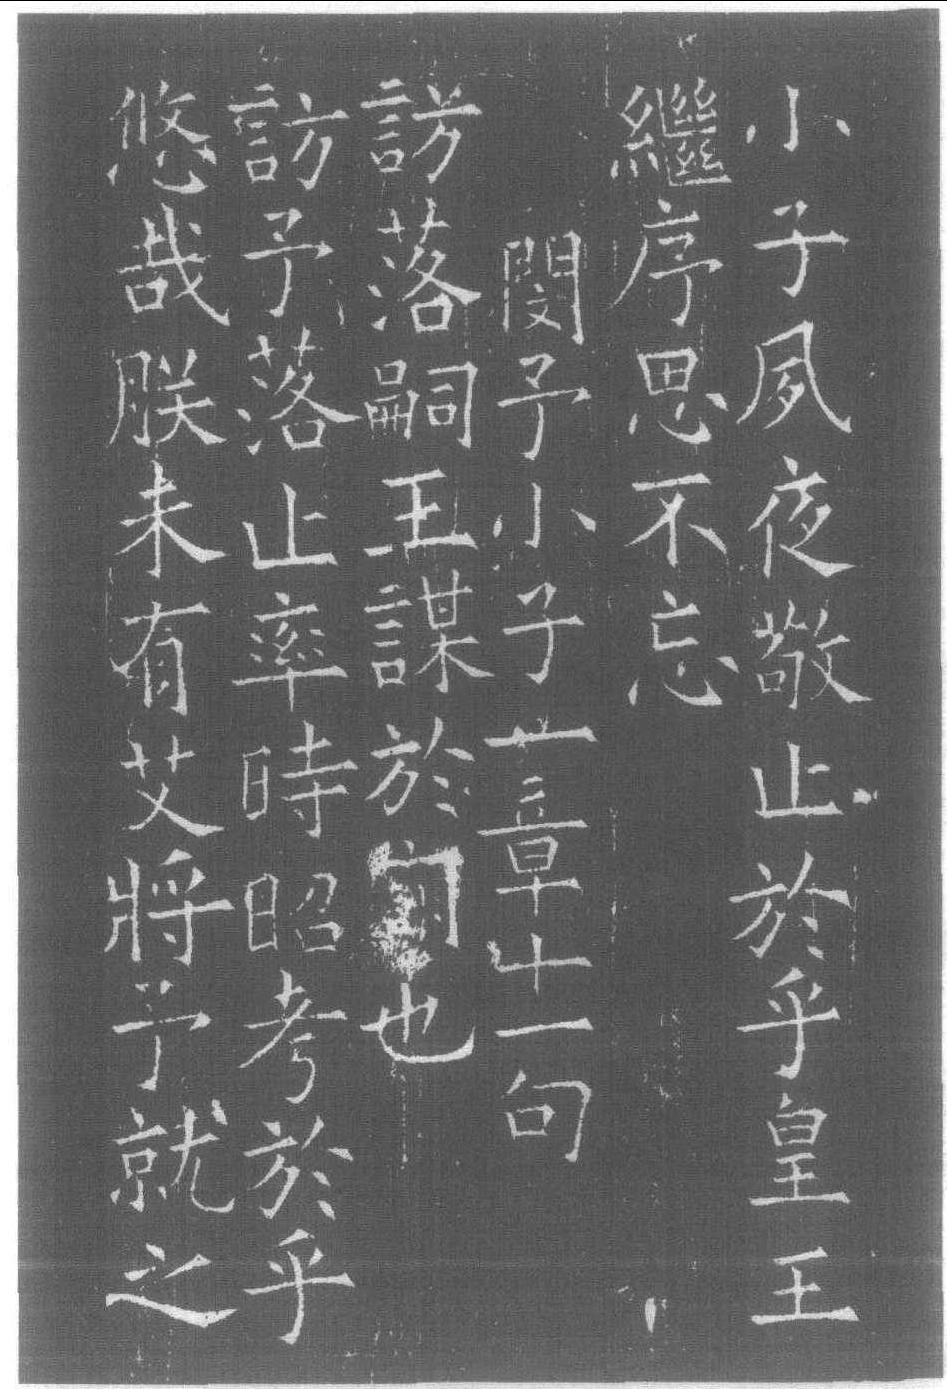 小子夙夜敬止於乎皇王
繼序思不忘
閔予小子一章十一句
訪落嗣王謀於也
訪予落止率時昭考於乎
悠哉朕未有艾將予就之